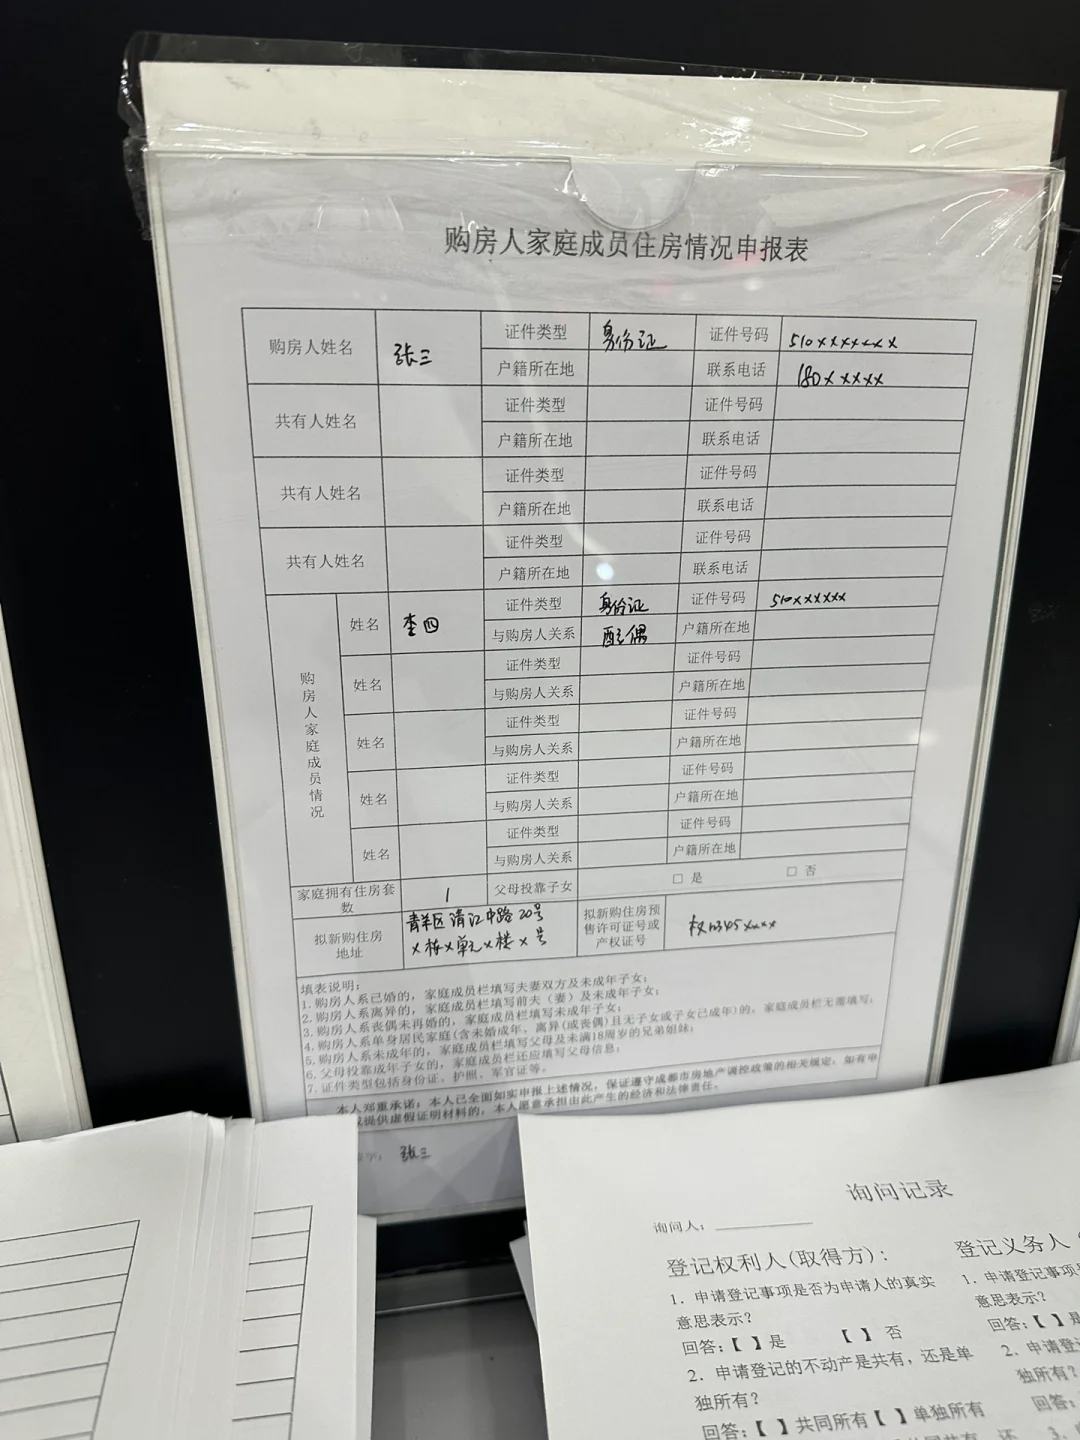 购房人家庭成员住房情况申报表
购房人姓名 张三 证件类型 身份证 证件号码 510xxxxxxx
户籍所在地 联系电话 180xxxxx
共有人姓名 证件类型 证件号码
户籍所在地 联系电话
共有人姓名 证件类型 证件号码
户籍所在地 联系电话
共有人姓名 证件类型 证件号码
户籍所在地 联系电话
购房人家庭成员情况
姓名 李四 证件类型 身份证 证件号码 510xxxxxx
与购房人关系 配偶 户籍所在地
姓名 证件类型 证件号码
与购房人关系 户籍所在地
姓名 证件类型 证件号码
与购房人关系 户籍所在地
姓名 证件类型 证件号码
与购房人关系 户籍所在地
姓名 证件类型 证件号码
与购房人关系 户籍所在地
家庭拥有住房套数 1 父母投靠子女 □ 是 □ 否
拟新购住房地址 青羊区清江中路20号
x栋x单元x楼x号
拟新购住房预售许可证号或产权证号 权12345xxxx
填表说明：
1.购房人系已婚的，家庭成员栏填写夫妻双方及未成年子女；
2.购房人系离异的，家庭成员栏填写前夫（妻）及未成年子女；
3.购房人系丧偶未再婚的，家庭成员栏填写未成年子女；
4.购房人系单身居民家庭(含未婚成年、离异(或丧偶)且无子女或子女已成年)的，家庭成员栏无需填写；
5.购房人系未成年的，家庭成员栏填写父母及未满18周岁的兄弟姐妹；
6.父母投靠成年子女的，家庭成员栏还应填写父母信息；
7.证件类型包括身份证、护照、军官证等。
本人郑重承诺：本人已全面如实申报上述情况，保证遵守成都市房地产调控政策的相关规定，如有申
提供虚假证明材料的，本人愿意承担由此产生的经济和法律责任。
张三
询问记录
询问人：
登记权利人(取得方)：
1．申请登记事项是否为申请人的真实
意思表示？
回答：【 】是 【 】否
2．申请登记的不动产是共有，还是单
独所有？
回答：【 】共同所有【 】单独所有
登记义务人
1．申请登记事项是
意思表示？
回答：【 】是
2．申请登
独所有？
回答：
3．